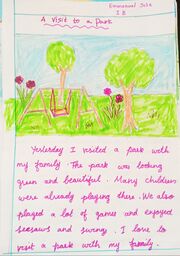 Emmanuel Jola
I B
A Visit to a Park
Yesterday I visited a park with
my family. The park was looking
green and beautiful. Many children
were already playing there. We also
played a lot of games and enjoyed
seesaws and swing. I love to
visit a park with my family.